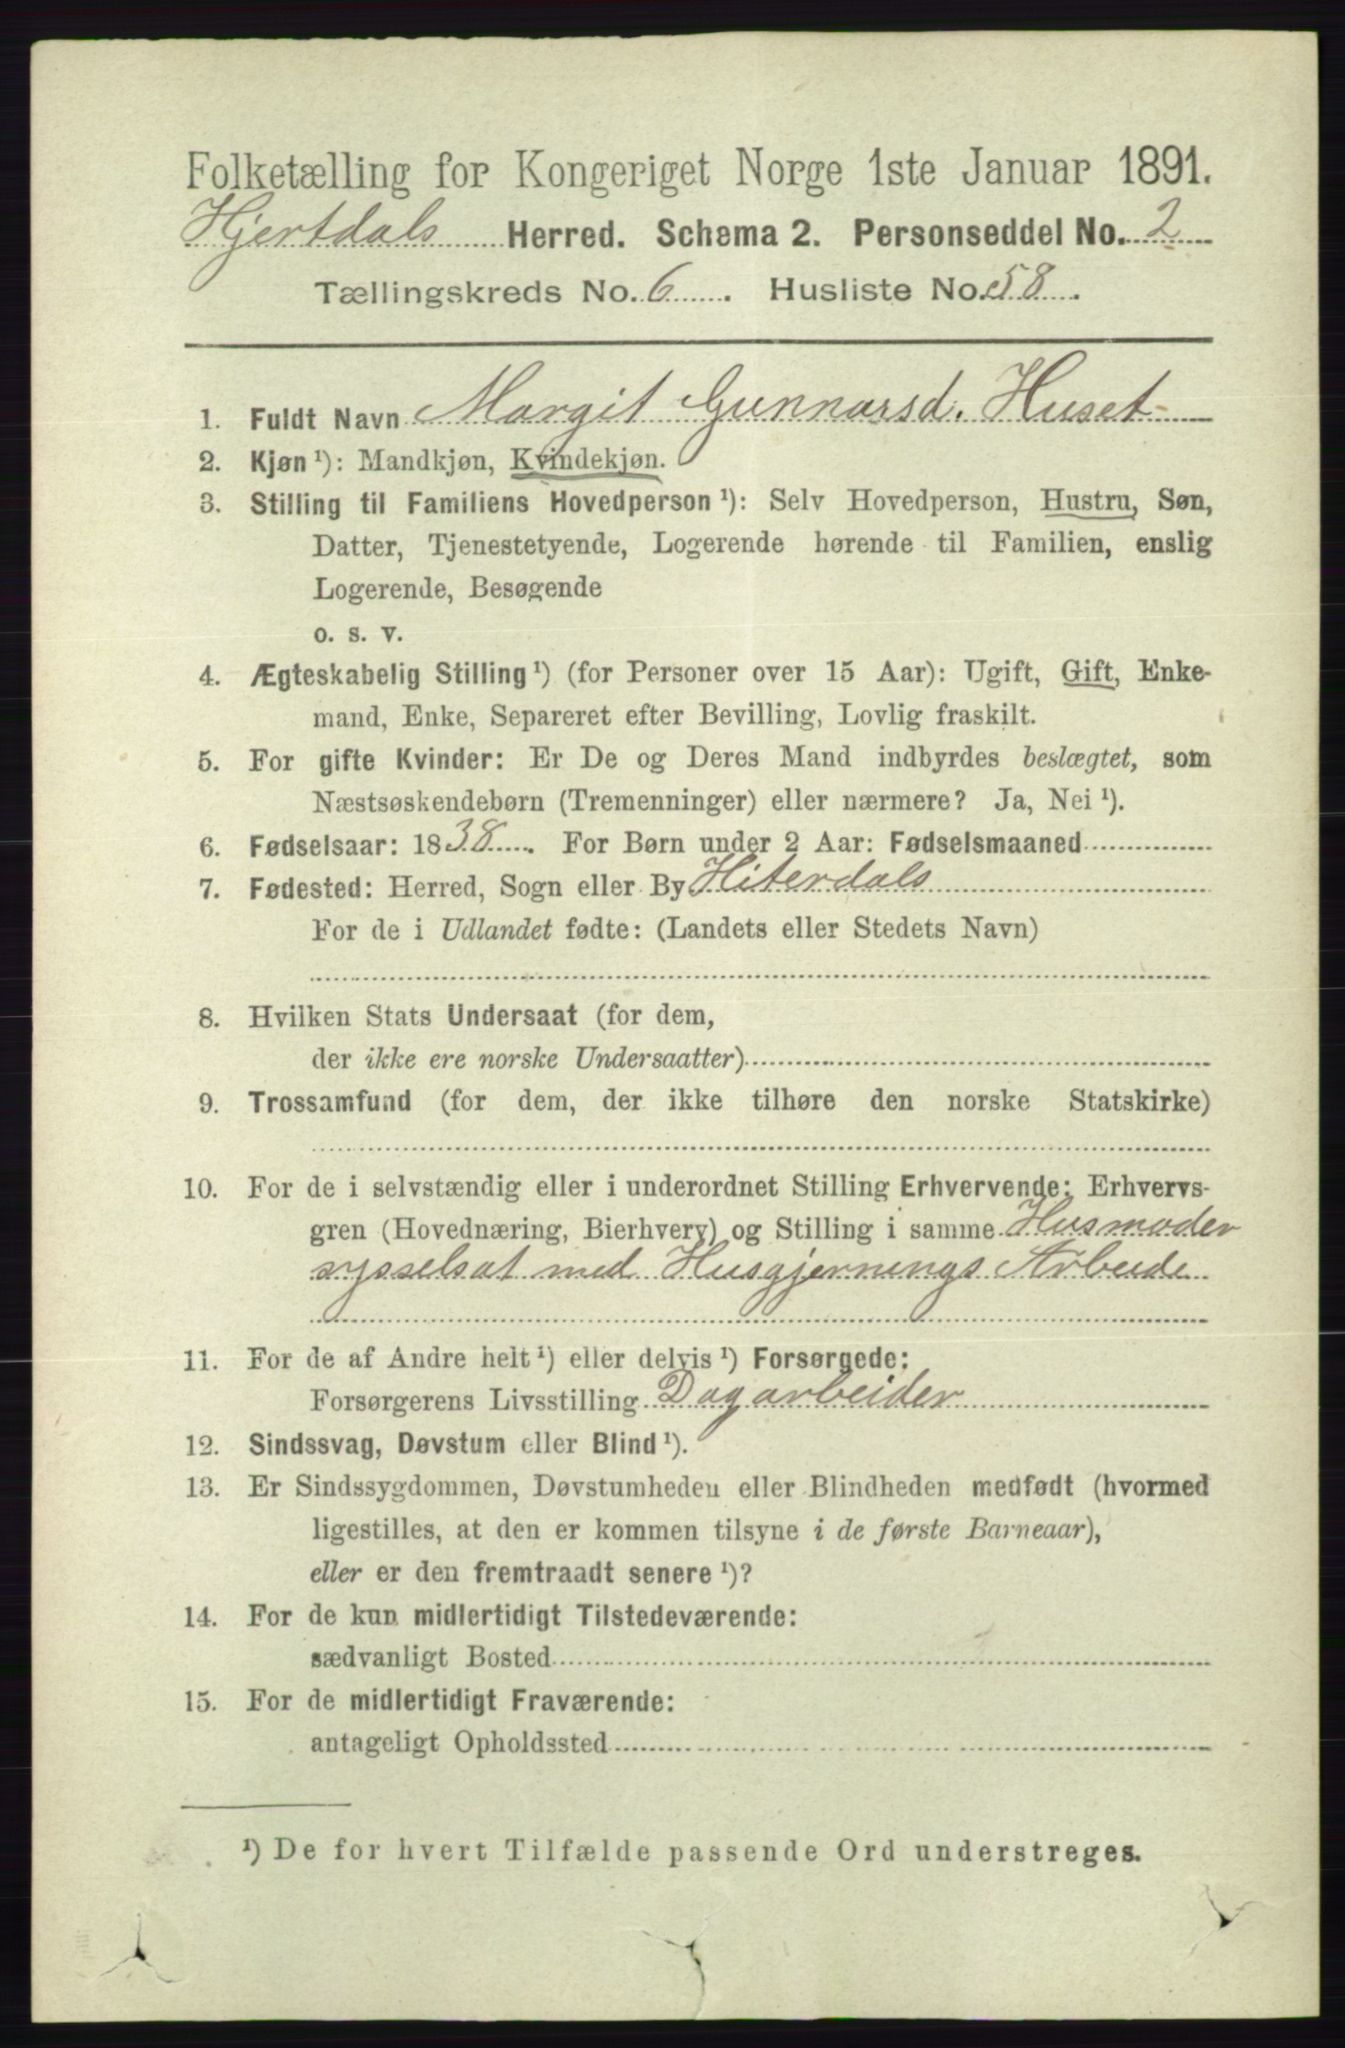 Folketælling for Kongeriget Norge 1ste Januar 1891.
Hjertdals Herred. Schema 2. Personseddel No. 2
Tællingskreds No. 6. Husliste No. 58.
1. Fuldt Navn Margit Gunnarsd. Huset
2. Kjøn ¹): Mandkjøn, Kvindekjøn.
3. Stilling til Familiens Hovedperson ¹): Selv Hovedperson, Hustru, Søn,
Datter, Tjenestetyende, Logerende hørende til Familien, enslig
Logerende, Besøgende
o. s. v.
4. Ægteskabelig Stilling ¹) (for Personer over 15 Aar): Ugift, Gift, Enke-
mand, Enke, Separeret efter Bevilling, Lovlig fraskilt.
5. For gifte Kvinder: Er De og Deres Mand indbyrdes beslægtet, som
Næstsøskendebørn (Tremenninger) eller nærmere? Ja, Nei ¹).
6. Fødselsaar: 1838. For Børn under 2 Aar: Fødselsmaaned
7. Fødested: Herred, Sogn eller By Hiterdals
For de i Udlandet fødte: (Landets eller Stedets Navn)
8. Hvilken Stats Undersaat (for dem,
der ikke ere norske Undersaatter)
9. Trossamfund (for dem, der ikke tilhøre den norske Statskirke)
10. For de i selvstændig eller i underordnet Stilling Erhvervende: Erhvervs-
gren (Hovednæring, Bierhverv) og Stilling i samme Husmoder
sysselsat med Husgjernings Arbeide
11. For de af Andre helt ¹) eller delvis ¹) Forsørgede:
Forsørgerens Livsstilling Dagarbeider
12. Sindssvag, Døvstum eller Blind ¹).
13. Er Sindssygdommen, Døvstumheden eller Blindheden medfødt (hvormed
ligestilles, at den er kommen tilsyne i de første Barneaar),
eller er den fremtraadt senere ¹)?
14. For de kun midlertidigt Tilstedeværende:
sædvanligt Bosted
15. For de midlertidigt Fraværende:
antageligt Opholdssted
¹) De for hvert Tilfælde passende Ord understreges.